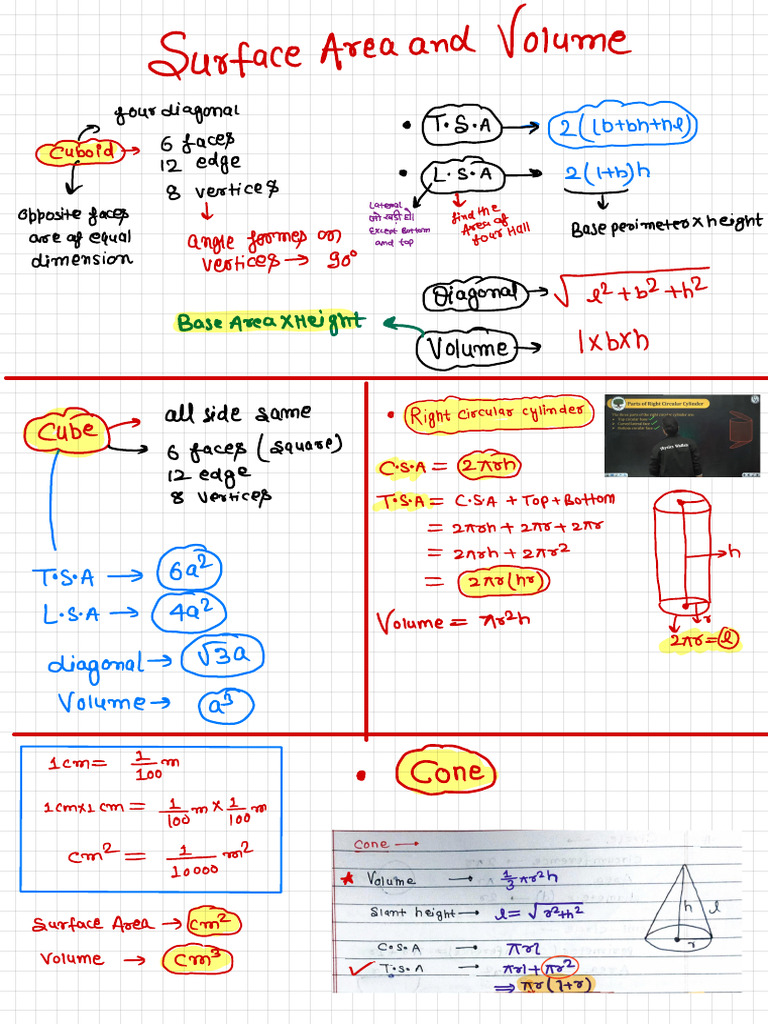 Surface Area and Volume
four diagonal
Cuboid → 6 faces
12 edge
8 vertices
opposite faces
are of equal
dimension
angle formes on
vertices → 90°
• T.S.A → 2(lb+bh+hl)
• L.S.A → 2(l+b)h
Lateral
जो खड़ी हो।
Except Bottom
and top
find the
Area of
four Hall
Base perimeter × height
Diagonal → √l²+b²+h²
Base Area × Height
Volume → l×b×h
Cube
all side same
6 faces (square)
12 edge
8 vertices
T.S.A → 6a²
L.S.A → 4a²
diagonal → √3a
Volume → a³
• Right circular cylinder
Parts of Right Circular Cylinder
Physics Wallah
C.S.A = 2πrh
T.S.A = C.S.A + Top + Bottom
= 2πrh + 2πr + 2πr
= 2πrh + 2πr²
= 2πr(hr)
Volume = πr²h
h
r
2πr = l
1cm = 1/100 m
1cm×1cm = 1/100 m × 1/100 m
cm² = 1/10000 m²
Surface Area → cm²
Volume → cm³
• Cone
Cone →
★ Volume → 1/3 πr²h
Slant height → l = √r²+h²
C.S.A → πrl
✓ T.S.A → πrl + πr²
⇒ πr(l+r)
h
l
r